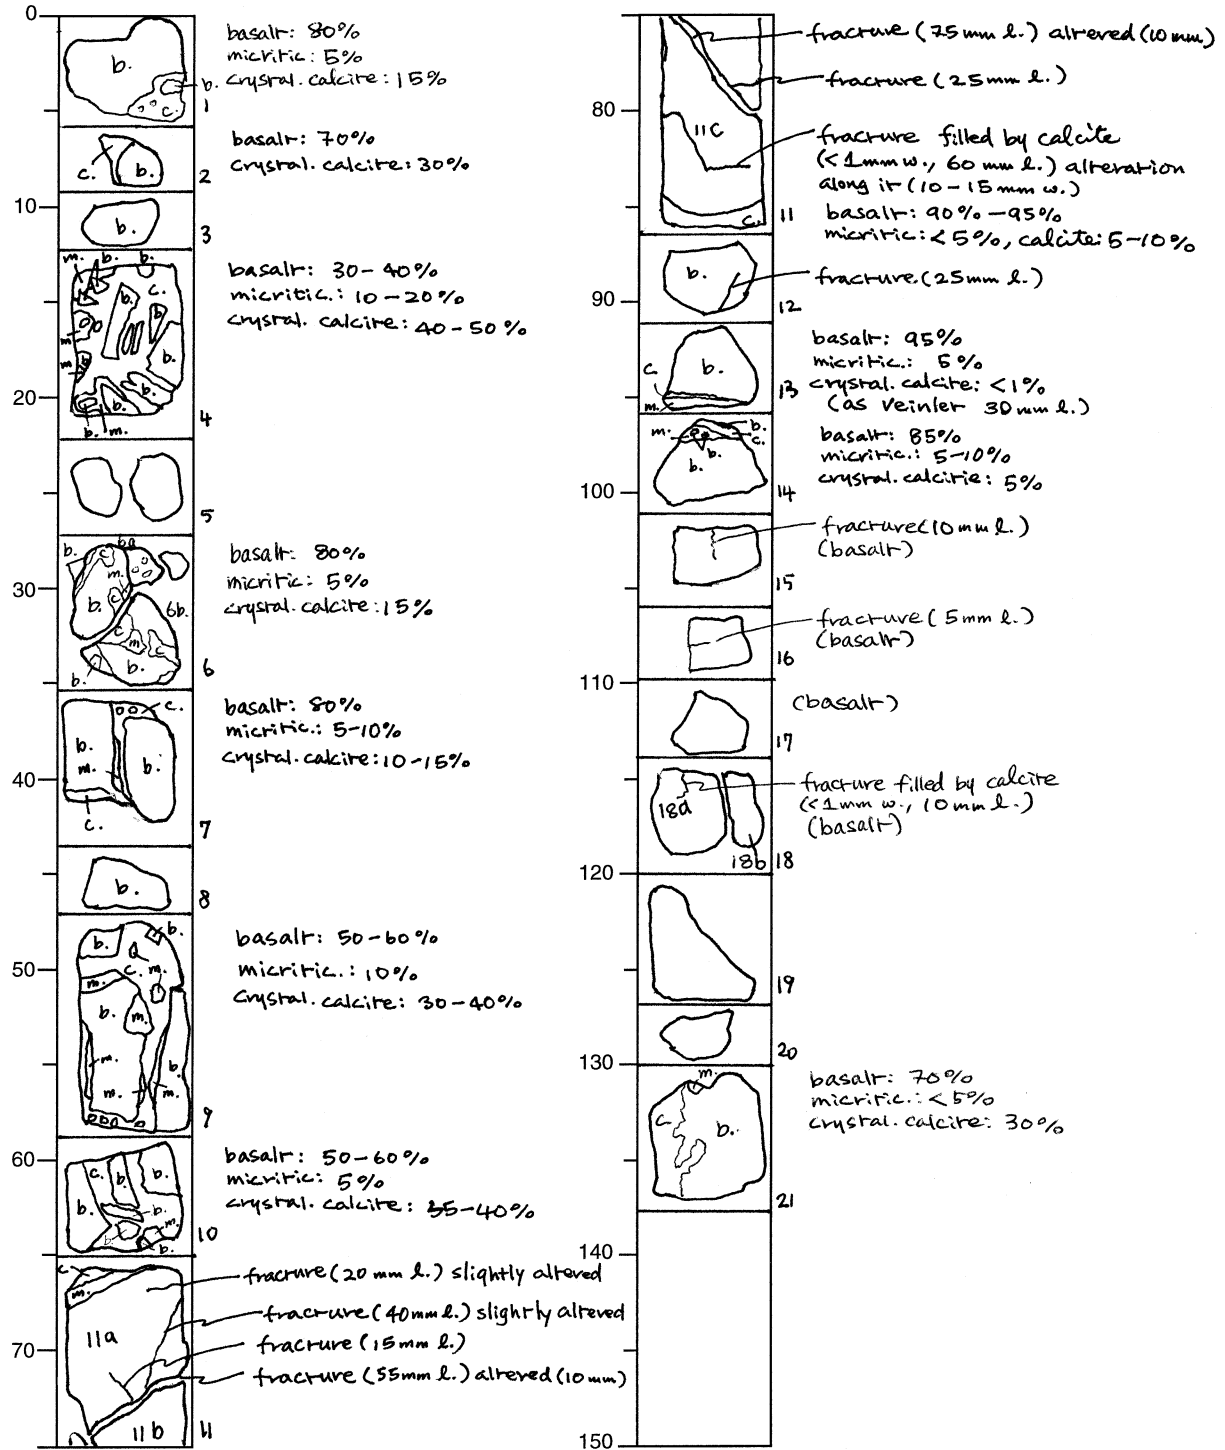 0
basalt: 80%
micritic: 5%
crystal. calcite: 15%
b.
b.
c.
1
basalt: 70%
crystal. calcite: 30%
c.
b.
2
10
b.
3
m. b. b.
c.
basalt: 30-40%
micritic.: 10-20%
crystal. calcite: 40-50%
b.
b.
m.
b.
m.
b.
b.
b.
b. m.
20
4
5
b. 6a
c.
m.
c.
b.
6b.
basalt: 80%
micritic: 5%
crystal. calcite: 15%
30
c.
m.
c.
b.
b.
6
c.
basalt: 80%
micritic.: 5-10%
crystal. calcite: 10-15%
b.
m.
b.
40
c.
7
b.
8
b.
b.
c.
m.
basalt: 50-60%
micritic.: 10%
crystal. calcite: 30-40%
50
m.
b.
m.
m.
b.
m.
m.
9
60
c.
b.
b.
b.
b.
b.
m.
b.
basalt: 50-60%
micritic: 5%
crystal. calcite: 35-40%
10
c.
m.
fracture (20 mm l.) slightly altered
fracture (40mm l.) slightly altered
11a
fracture (15mm l.)
70
fracture (55mm l.) altered (10mm)
11b
11
fracture (75mm l.) altered (10mm)
fracture (25mm l.)
80
11c
fracture filled by calcite
(<1mm w., 60 mm l.) alteration
along it (10-15mm w.)
c.
11
basalt: 90%-95%
micritic: <5%, calcite: 5-10%
b.
fracture (25mm l.)
90
12
basalt: 95%
micritic.: 5%
crystal. calcite: <1%
(as veinlet 30mm l.)
b.
c.
m.
13
m.
b.
c.
b.
b.
basalt: 85%
micritic.: 5-10%
crystal. calcitie: 5%
100
14
fracture (10mm l.)
(basalt)
15
fracture (5mm l.)
(basalt)
16
110
(basalt)
17
18a
fracture filled by calcite
(<1mm w., 10mm l.)
(basalt)
18b
18
120
19
20
130
m.
c.
b.
basalt: 70%
micritic.: <5%
crystal. calcite: 30%
21
140
150